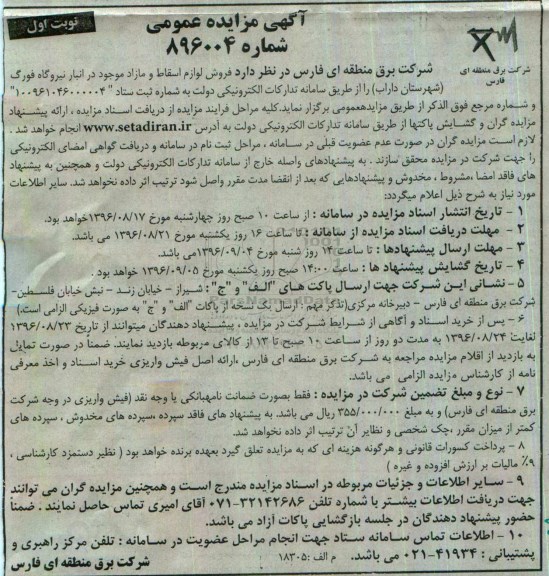 آگهی مزایده عمومی
شماره ۸۹۶۰۰۴
نوبت اول
شرکت برق منطقه ای
فارس
شرکت برق منطقه ای فارس در نظر دارد فروش لوازم اسقاط و مازاد موجود در انبار نیروگاه فورگ
(شهرستان داراب) را از طریق سامانه تدارکات الکترونیکی دولت به شماره ثبت ستاد "۱۰۰۹۶۱۰۴۶۰۰۰۰۰۴"
و شماره مرجع فوق الذکر از طریق مزایدهعمومی برگزار نماید.کلیه مراحل فرایند مزایده از دریافت اسناد مزایده ، ارائه پیشنهاد
مزایده گران و گشایش پاکتها از طریق سامانه تدارکات الکترونیکی دولت به آدرس www.setadiran.ir انجام خواهد شد .
لازم است مزایده گران در صورت عدم عضویت قبلی در سامانه ، مراحل ثبت نام در سامانه و دریافت گواهی امضای الکترونیکی
را جهت شرکت در مزایده محقق سازند . به پیشنهادهای واصله خارج از سامانه تدارکات الکترونیکی دولت و همچنین به پیشنهاد
های فاقد امضا ،مشروط ، مخدوش و پیشنهادهایی که بعد از انقضا مدت مقرر واصل شود ترتیب اثر داده نخواهد شد. سایر اطلاعات
مورد نیاز به شرح ذیل اعلام میگردد:
۱ - تاریخ انتشار اسناد مزایده در سامانه : از ساعت ۱۰ صبح روز چهارشنبه مورخ ۱۳۹۶/۰۸/۱۷خواهد بود.
۲ - مهلت دریافت اسناد مزایده از سامانه : تا ساعت ۱۶ روز یکشنبه مورخ ۱۳۹۶/۰۸/۲۱ می باشد.
۳ - مهلت ارسال پیشنهادها : تا ساعت ۱۴ روز شنبه مورخ ۱۳۹۶/۰۹/۰۴می باشد.
۴ - تاریخ گشایش پیشنهاد ها : ساعت ۱۴:۰۰ صبح روز یکشنبه مورخ ۱۳۹۶/۰۹/۰۵ خواهد بود .
۵ - نشانی این شرکت جهت ارسال پاکت های "الف" و "ج": شیراز – خیابان زند – نبش خیابان فلسطین–
شرکت برق منطقه ای فارس – دبیرخانه مرکزی(تذکر مهم : ارسال یک نسخه از پاکات "الف" و "ج" به صورت فیزیکی الزامی است.)
۶ – پس از خرید اسناد و آگاهی از شرایط شرکت در مزایده ، پیشنهاد دهندگان میتوانند از تاریخ ۱۳۹۶/۰۸/۲۳
لغایت ۱۳۹۶/۰۸/۲۴ به مدت دو روز از ساعت ۱۰ صبح تا ۱۳ از کالای مربوطه بازدید نمایند. ضمناً در صورت تمایل
به بازدید از اقلام مزایده مراجعه به شرکت برق منطقه ای فارس ،ارائه اصل فیش واریزی خرید اسناد و اخذ معرفی
نامه از کارشناس مزایده الزامی می باشد.
۷ - نوع و مبلغ تضمین شرکت در مزایده : فقط بصورت ضمانت نامهبانکی یا وجه نقد (فیش واریزی در وجه شرکت
برق منطقه ای فارس) و به مبلغ ۳۵۵/۰۰۰/۰۰۰ ریال می باشد. به پیشنهاد های فاقد سپرده ،سپرده های مخدوش ، سپرده های
کمتر از میزان مقرر ،چک شخصی و نظایر آن ترتیب اثر داده نخواهد شد.
۸ – پرداخت کسورات قانونی و هرگونه هزینه ای که به مزایده تعلق گیرد بعهده برنده خواهد بود ( نظیر دستمزد کارشناسی ،
۹٪ مالیات بر ارزش افزوده و غیره )
۹ - سایر اطلاعات و جزئیات مربوطه در اسناد مزایده مندرج است و همچنین مزایده گران می توانند
جهت دریافت اطلاعات بیشتر با شماره تلفن ۳۲۱۴۲۶۸۶-۰۷۱ آقای امیری تماس حاصل نمایند . ضمناً
حضور پیشنهاد دهندگان در جلسه بازگشایی پاکات آزاد می باشد.
۱۰ - اطلاعات تماس سامانه ستاد جهت انجام مراحل عضویت در سامانه : تلفن مرکز راهبری و
پشتیبانی : ۴۱۹۳۴-۰۲۱ می باشد.
م الف :۱۸۳۰۵
شرکت برق منطقه ای فارس